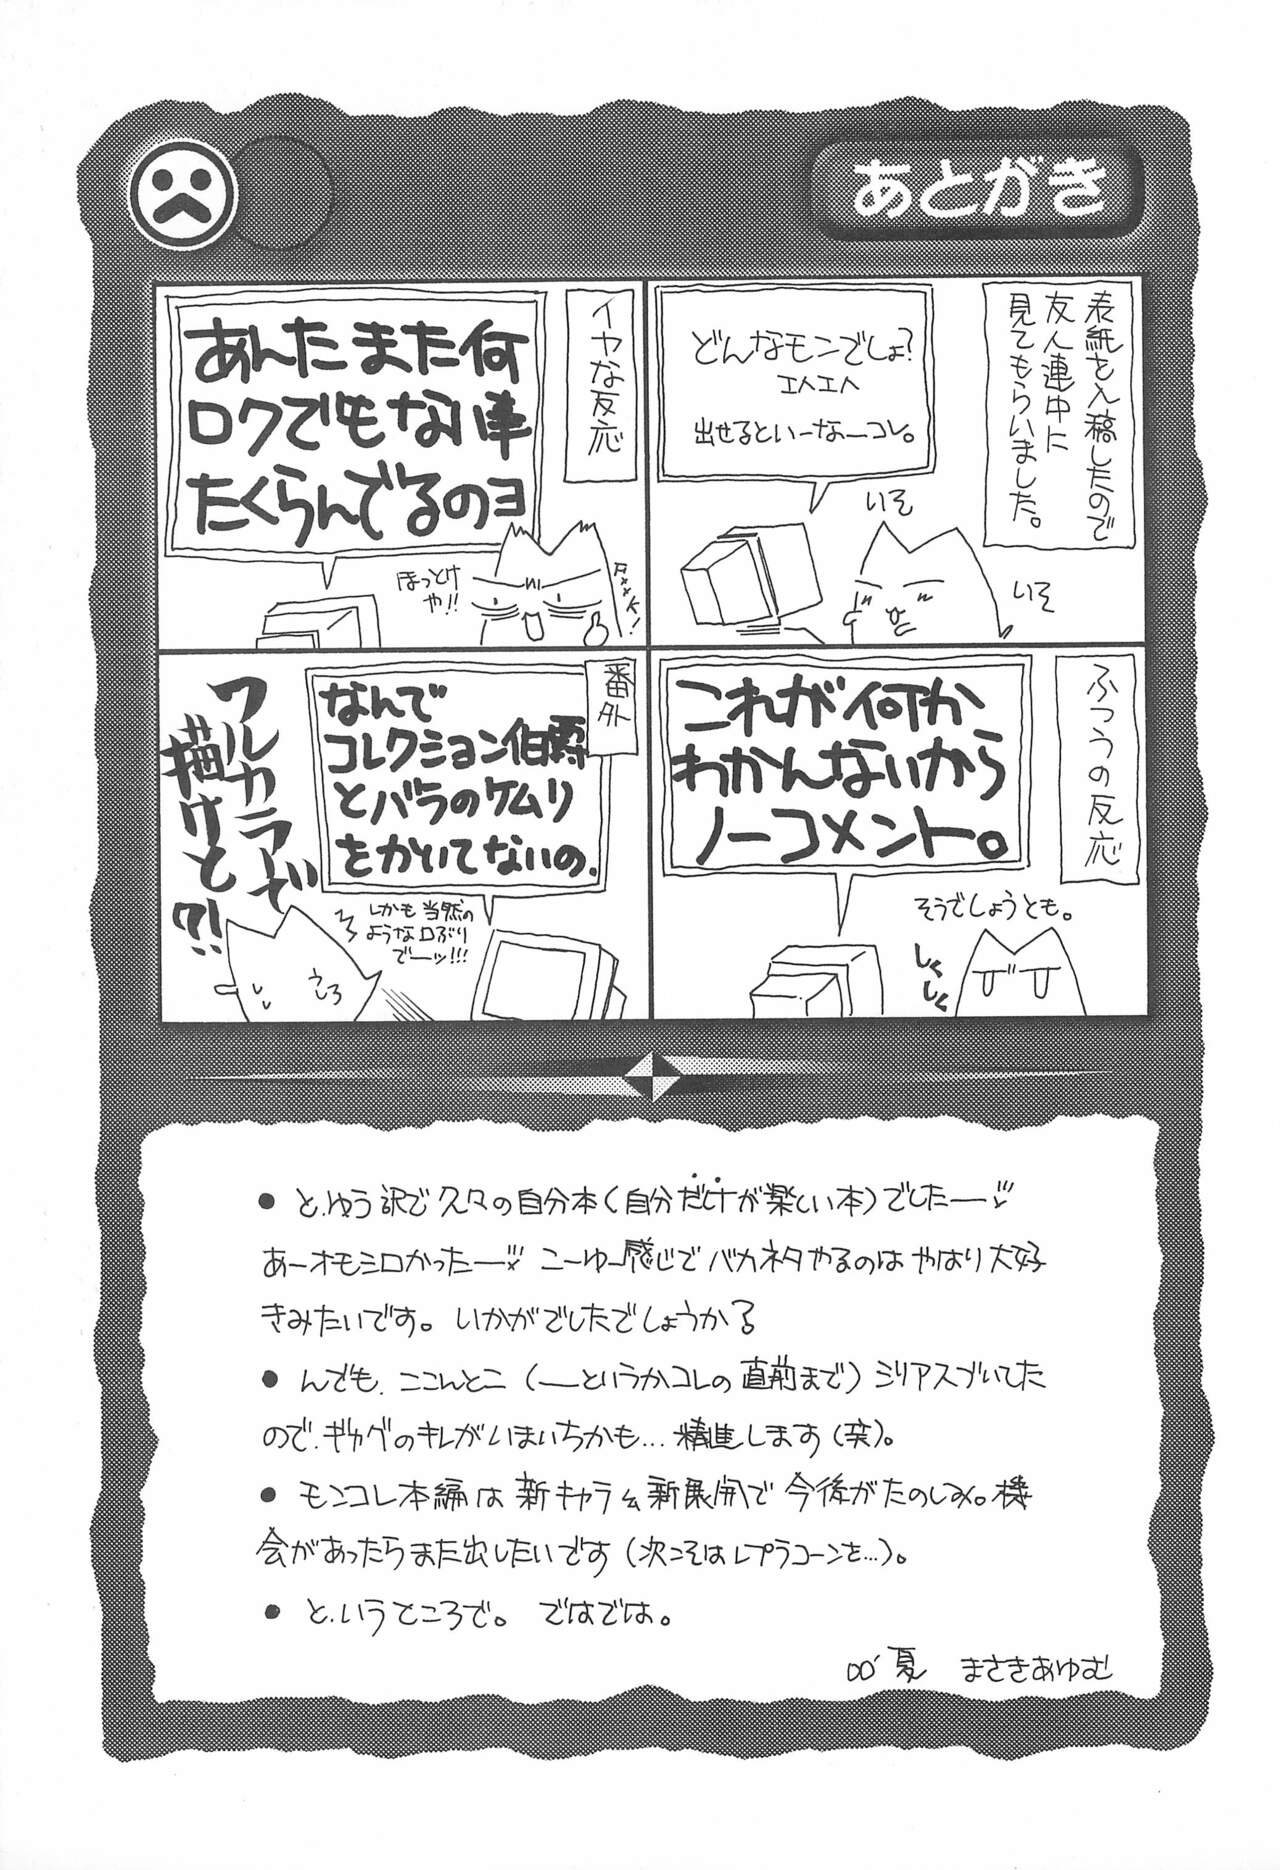 あとがき
表紙を入稿したので
友人連中に
見てもらいました。
どんなモンでしょ?
エヘエヘ
出せるといーなーコレ。
いそ
いそ
イヤな反応
あんたまた何
ロクでもない事
たくらんでるのヨ
ほっとけ
や!!
ふつうの反応
これが何か
わかんないから
ノーコメント。
そうでしょうとも。
しくしく
番外
なんで
コレクション伯爵
とバラのケムリ
をかいてないの.
フルカラーで
描けと?!
しかも当然の
ような口ぶり
でーッ!!!
うしろ
● と.ゆう訳で久々の自分本(自分だけが楽しい本)でしたー♡
あーオモシロかったー♡ こーゆー感じでバカネタやるのはやはり大好
きみたいです。いかがでしたでしょうか?
● んでも.ここんとこ(—というかコレの直前まで)シリアスづいてた
ので.ギャグのキレがいまいちかも…精進します(笑)。
● モンコレ本編は新キャラ&新展開で今後がたのしみ。機
会があったらまた出したいです(次こそはレプラコーンを…)。
● と.いうところで。ではでは。
00'夏 まさきあゆむ